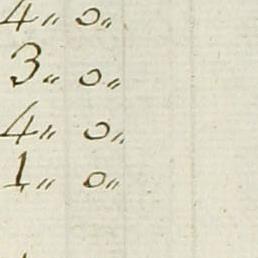 4〃 0〃
3〃 0〃
4〃 0〃
1〃 0〃